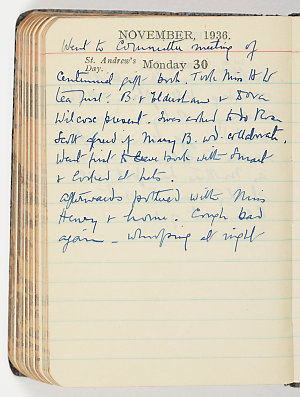 NOVEMBER, 1936.
Went to Committee meeting of
St. Andrew's Day.
Monday 30
Centennial gift book. Took Miss H to
tea first. B. & Eldershaw & Dora
Wilcox present. I was asked to do Rose
Scott & if Mary B. wd. collaborate.
Went first to book with
& looked at hats.
afterwards pottered with Miss
Henry & home. Cough bad
again - whooping at night